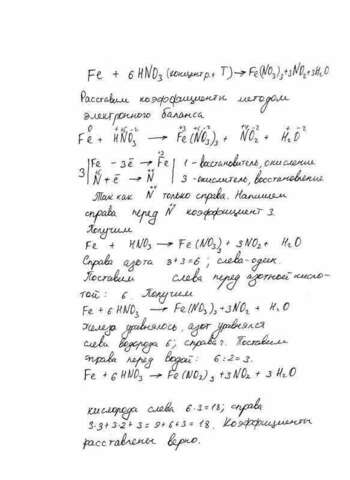 Fe + 6HNO3 (концентр. + T) → Fe(NO3)3 + 3NO2 + 3H2O
Расставим коэффициенты методом
электронного баланса
0 +1 +5 -2 +3 +5 -2 +4 -2 +1 -2
Fe + HNO3 → Fe(NO3)3 + NO2 + H2O
Fe - 3ē → Fe+3 | 1 - восстановитель, окисление
3 | N+5 + ē → N+4 | 3 - окислитель, восстановление
Так как N+4 только справа. Напишем
справа перед N+4 коэффициент 3.
Получим
Fe + HNO3 → Fe(NO3)3 + 3NO2 + H2O
Справа азота 3+3=6; слева-один.
Поставим слева перед азотной кисло-
той: 6. Получим
Fe + 6HNO3 → Fe(NO3)3 + 3NO2 + H2O
Железо уравнялось, азот уравнялся
слева водорода 6; справа 2. Поставим
справа перед водой: 6:2=3.
Fe + 6HNO3 → Fe(NO2)3 + 3NO2 + 3H2O
кислорода слева 6·3=18; справа
3·3+3·2+3=9+6+3=18. Коэффициенты
расставлены верно.